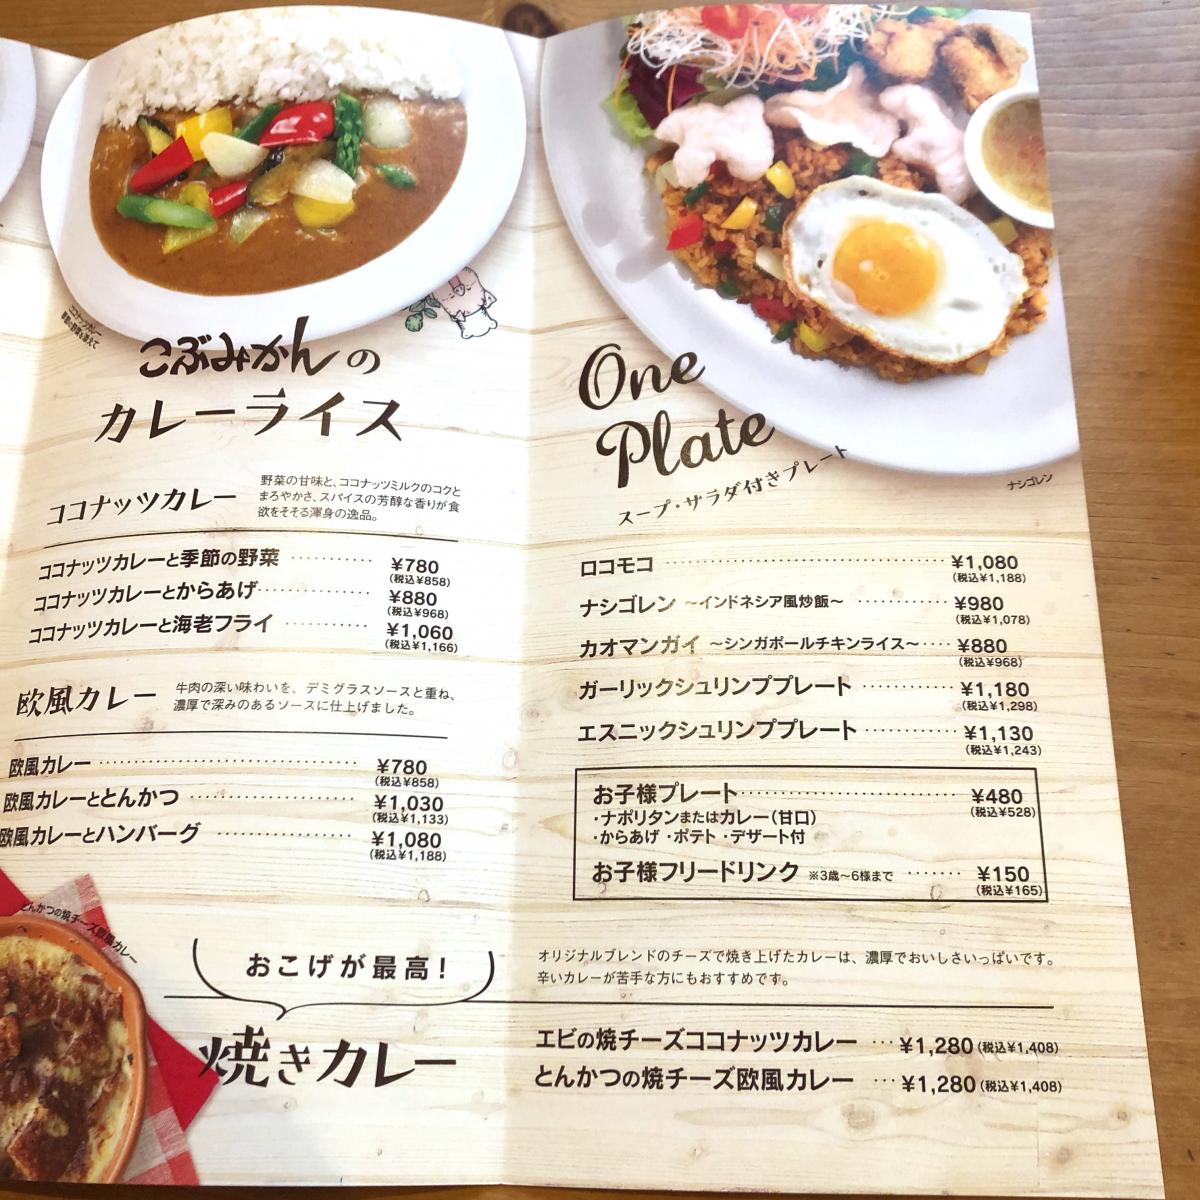 ココナッツカレー
季節の野菜を添えて
こぶみかんの
カレーライス
ココナッツカレー
野菜の甘味と、ココナッツミルクのコクと
まろやかさ、スパイスの芳醇な香りが食
欲をそそる渾身の逸品。
ココナッツカレーと季節の野菜 ¥780
(税込¥858)
ココナッツカレーとからあげ ¥880
(税込¥968)
ココナッツカレーと海老フライ ¥1,060
(税込¥1,166)
欧風カレー
牛肉の深い味わいを、デミグラスソースと重ね、
濃厚で深みのあるソースに仕上げました。
欧風カレー ¥780
(税込¥858)
欧風カレーととんかつ ¥1,030
(税込¥1,133)
欧風カレーとハンバーグ ¥1,080
(税込¥1,188)
One
Plate
スープ・サラダ付きプレート
ナシゴレン
ロコモコ ¥1,080
(税込¥1,188)
ナシゴレン ~インドネシア風炒飯~ ¥980
(税込¥1,078)
カオマンガイ ~シンガポールチキンライス~ ¥880
(税込¥968)
ガーリックシュリンププレート ¥1,180
(税込¥1,298)
エスニックシュリンププレート ¥1,130
(税込¥1,243)
お子様プレート ¥480
(税込¥528)
・ナポリタンまたはカレー(甘口)
・からあげ ・ポテト ・デザート付
お子様フリードリンク ※3歳~6様まで ¥150
(税込¥165)
とんかつの焼チーズ欧風カレー
おこげが最高!
焼きカレー
オリジナルブレンドのチーズで焼き上げたカレーは、濃厚でおいしさいっぱいです。
辛いカレーが苦手な方にもおすすめです。
エビの焼チーズココナッツカレー ¥1,280 (税込¥1,408)
とんかつの焼チーズ欧風カレー ¥1,280 (税込¥1,408)